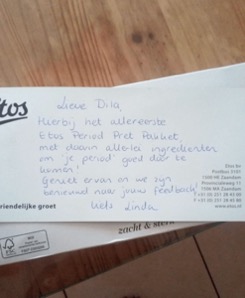 Etos
Lieve Dila,
Hierbij het allereerste
Etos Period Pret Pakket
met daarin allerlei ingrediënten
om 'je period' goed door te
komen!
Geniet ervan en we zijn
benieuwd naar jouw feedback!
Liefs Linda
Etos BV
Postbus 3191
1500 HK Zaandam
Provincialeweg 11
1506 MA Zaandam
vriendelijke groet
zacht & sterk
FSC